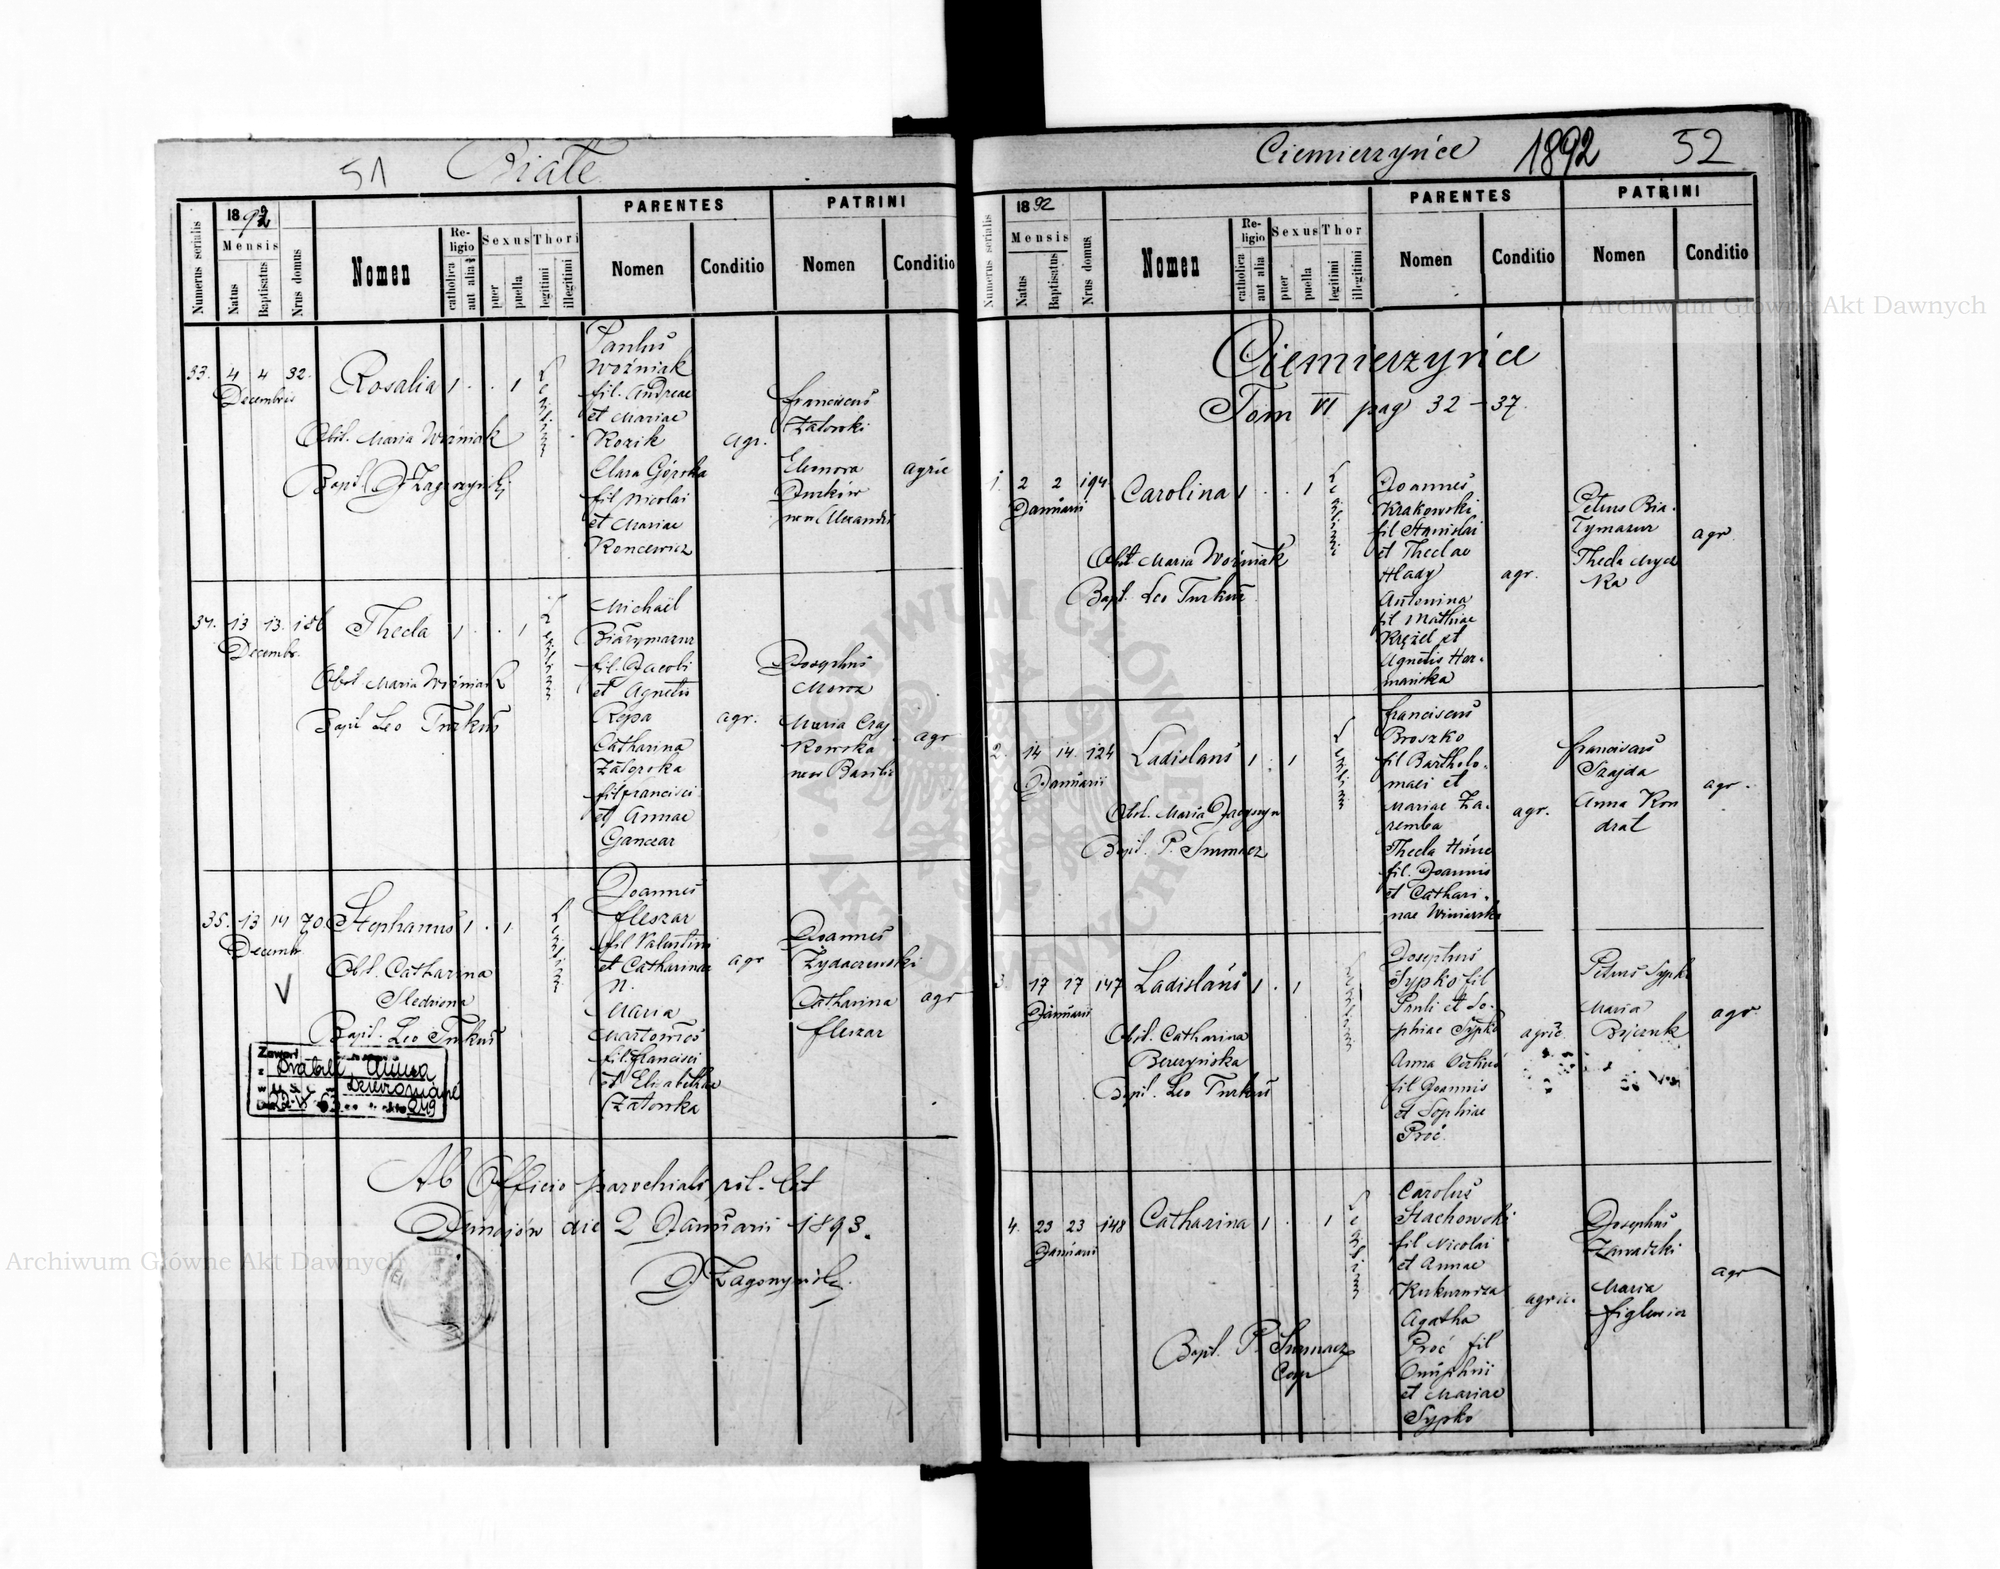 51 Białe
Numerus serialis
1892
Mensis
Natus
Baptisatus
Nrus domus
Nomen
Religio
catholica
aut alia
Sexus
puer
puella
Thori
legitimi
illegitimi
PARENTES
Nomen
Conditio
PATRINI
Nomen
Conditio
33. 4 4 32.
Decembris
Rosalia 1 . . 1
Legitimi
Obst. Maria Woźniak
Paulus
Woźniak
fil. Andreae
et Mariae
Kozik
Clara Górska
fil Nicolai
et Mariae
Koncewicz
agr.
Franciscus
Zatorski
Eleonora
agric
34. 13 13. 156
Decembr.
Thecla 1 . . 1
Legitimi
Obst. Maria Woźniak
Bapt Leo Turkus
Michaël
Białymazur
fil. Jacobi
et Agnetis
Repa
Catharina
Zatorska
fil Francisci
et Annae
Gancear
agr.
Josephus
Moroz
Maria Czaj
kowska
agr
35. 13 14 70.
Decembr
Stephanus 1 . 1
Legitimi
Obst. Catharina
Bapt. Leo Turkus
Joannes
Fleszar
fil Valentini
et Catharinae
N.
Maria
fil. Francisci
et Elisabethae
Zatorska
agr
Joannes
Żydaczewski
Catharina
Fleszar
agr
Ab Officio parochiali rit. lat
Dunajów die 2 Januarii 1893.
Ciemierzyńce 1892 52
Numerus serialis
1892
Mensis
Natus
Baptisatus
Nrus domus
Nomen
Religio
catholica
aut alia
Sexus
puer
puella
Thor
legitimi
illegitimi
PARENTES
Nomen
Conditio
PATRINI
Nomen
Conditio
Ciemierzyńce
Tom VI pag 32 - 37.
1. 2 2 194
Januarii
Carolina 1 . . 1
Legitimi
Obst Maria Woźniak
Bapt. Leo Turkus
Joannes
Krakowski
fil Stanislai
et Theclae
Hlady
Antonina
fil Mathiae
Kęzel et
Agnetis Har-
mańska
agr.
Petrus Bia-
łymazur
Thecla Myd
ka
agr
2. 14 14. 124
Januarii
Ladislaus 1 . 1
Legitimi
Bapt. P. Smmacz
Franciscus
Broszko
fil Bartholo-
maei et
Mariae Za-
remba
Thecla
fil. Joannis
et Cathari-
nae Winiarska
agr.
Franciscus
Szajda
Anna Kon
drat
agr.
3. 17 17 147
Januarii
Ladislaus 1 . 1
Legitimi
Obst. Catharina
Berezyńska
Bapt. Leo Turkus
Josephus
Sypko fil
Pauli et So-
phiae Sypko
Anna
fil Joannis
et Sophiae
Proć
agric
Petrus Sypko
Maria
agr
4. 23 23 148
Januarii
Catharina 1 . 1
Legitimi
Bapt. P. Smmacz
Coop
Carolus
Stachowski
fil Nicolai
et Annae
Kukurudza
Agatha
Proć fil
Onuphrii
et Mariae
Sypko
agric.
Josephus
Zawadzki
Maria
Figlewicz
agr
Archiwum Główne Akt Dawnych
Archiwum Główne Akt Dawnych
ARCHIWUM GŁÓWNE AKT DAWNYCH